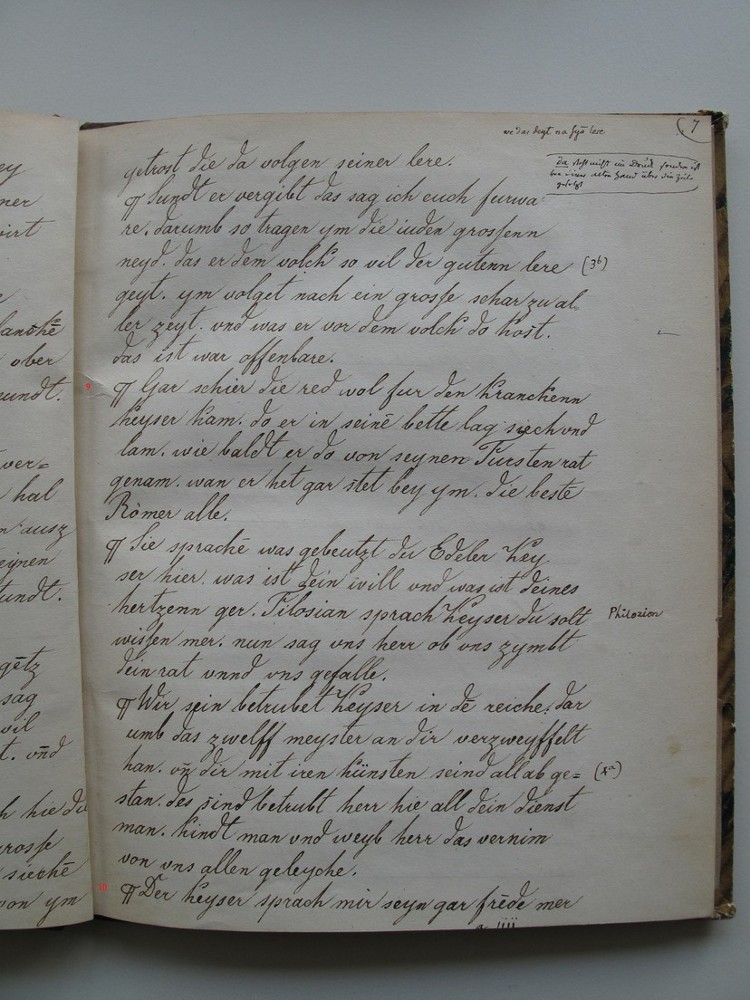 7
getrost die da volgen seiner lere.
¶ Sundt er vergibt das sag ich euch furwa
re. darumb so tragen ym die iuden grossenn
neyd. das er dem volck so vil der gutenn lere (3b)
geyt. ym volget nach ein grosse schar zu al
ler zeyt. vnd was er vor dem volck do kost.
das ist war offenbare.
9
¶ Gar schier die red wol fur den kranckenn
keyser kam. do er in seinē bette lag siech vnd
lam. wie baldt er do von seynen Fursten rat
genam. wan er het gar stet bey ym. die beste
Römer alle.
¶ Sie sprachē was gebeutzt du Edeler key
ser hier. was ist dein will vnd was ist deines
hertzenn ger. Filosian sprach keyser du solt Philozion
wissen mer. nun sag vns herr ob vns zymbt
dein rat vnnd vns gefalle.
¶ Wir sein betrubet keyser in dē reiche. dar
umb das zwelff meyster an dir verzweyffelt
han. vn̄ dir mit iren künsten seind all ab ge= (4a)
stan. des sind betrubt herr hie all dein dienst
man. kindt man vnd weyb herr das vernim
von vns allen geleyche.
10
¶ Der keyser sprach mir seyn gar frēde mer
a iiij
ey
ner
virt
e
lanckē
ober
undt.
ver=
hal
ausz
eynen
undt.
götz
sag
vil
t. vn̄d
h hie di
grosse
siechē
von ym